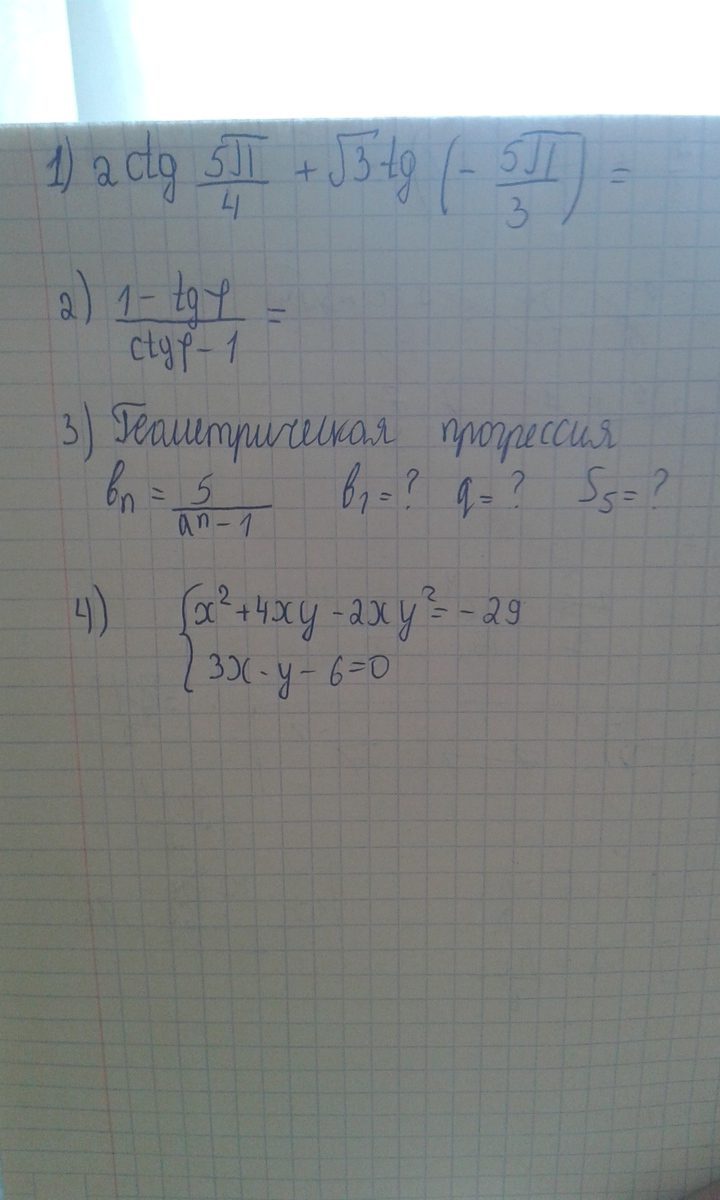 1) 2 ctg 5π/4 + √3 tg (- 5π/3) =
2) (1 - tg φ)/(ctg φ - 1) =
3) Геометрическая прогрессия
bₙ = 5/(2ⁿ - 1) b₁ = ? q = ? S₅ = ?
4) { x² + 4xy - 2xy² = - 29
3x - y - 6 = 0